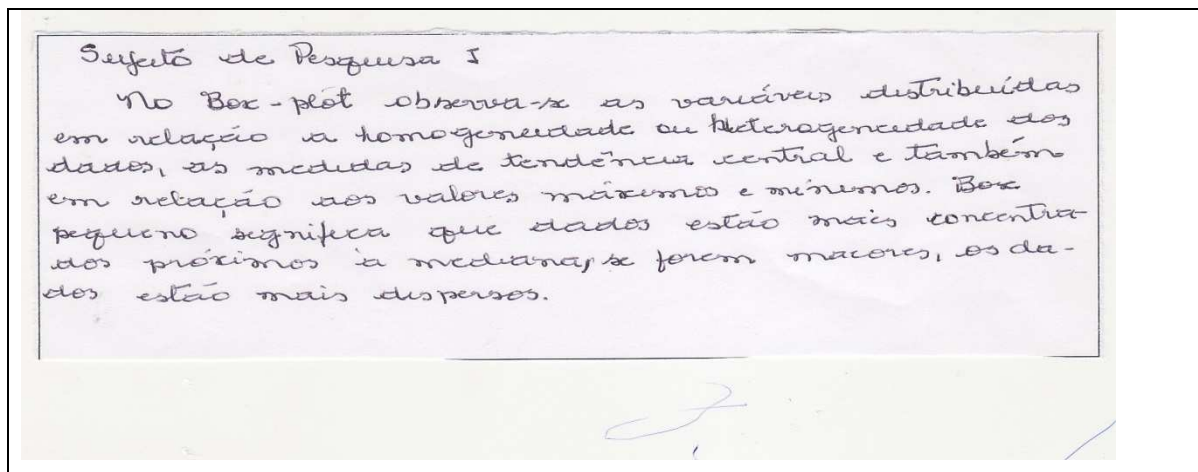 Sujeito de Pesquisa I
No Box-plot observa-se as variáveis distribuídas
em relação a homogeneidade ou heterogeneidade dos
dados, as medidas de tendência central e também
em relação aos valores máximos e mínimos. Box
pequeno significa que dados estão mais concentra-
dos próximos à mediana, se forem maiores, os da-
dos estão mais dispersos.